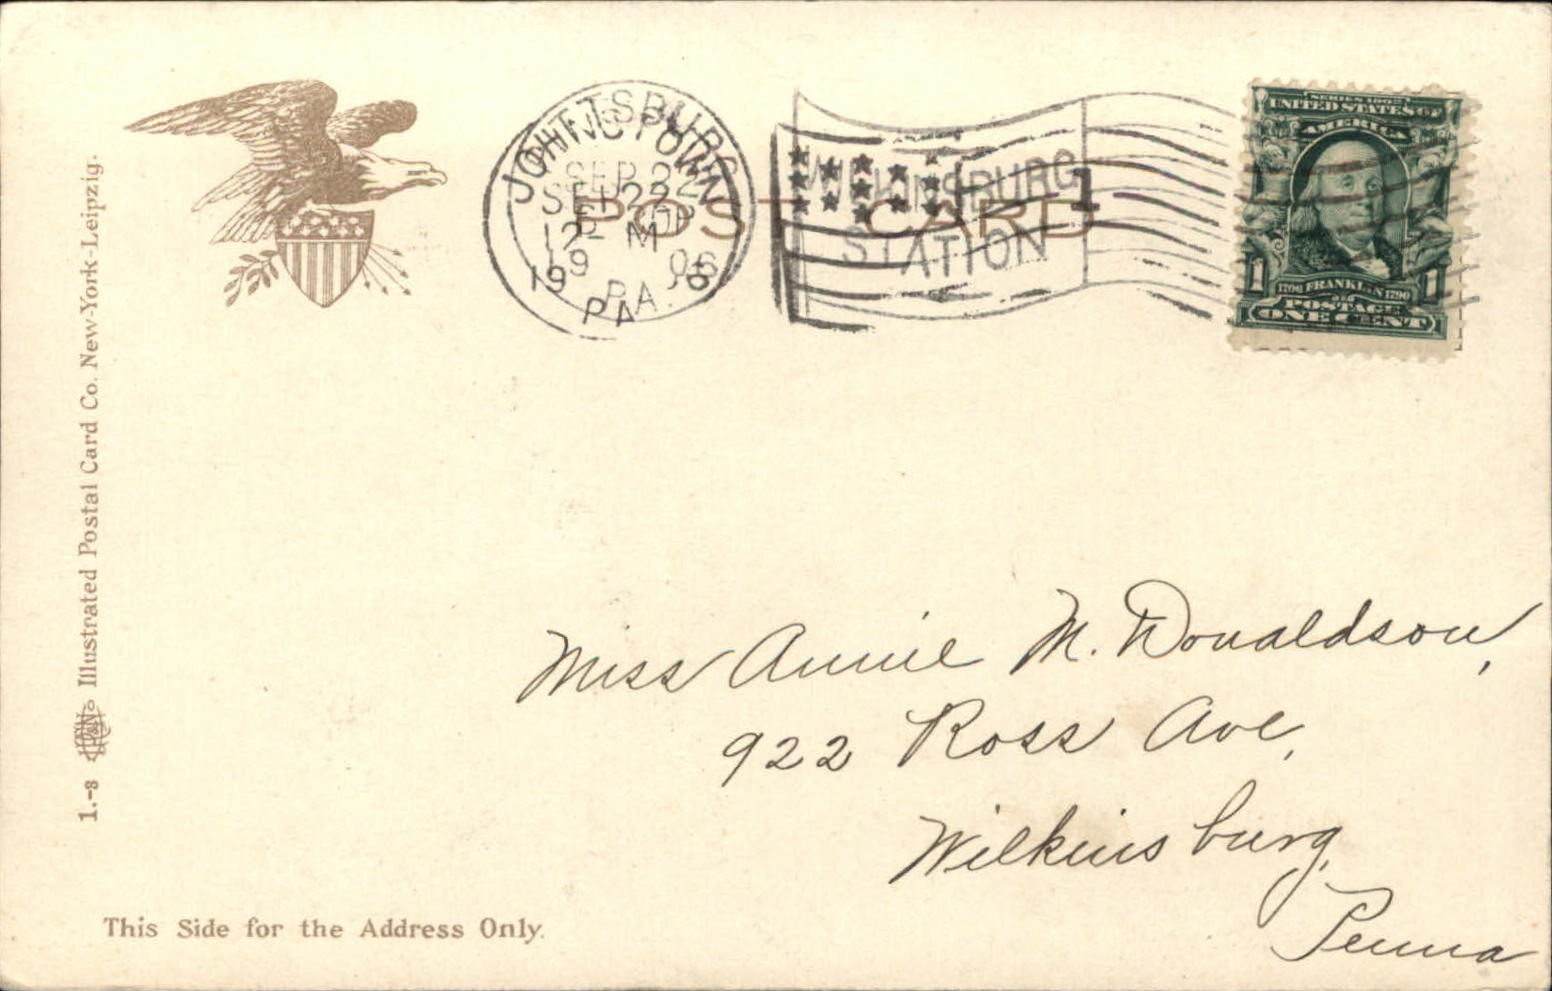 JOHNSTOWN
PITTSBURG
SEP 22
SEP 22
12 M
1906
1906
PA.
PA
WILKINSBURG
STATION
1
POST CARD
SERIES 1902
UNITED STATES OF
AMERICA
1 1
1706 FRANKLIN 1790
POSTAGE
ONE CENT
1.-8 Illustrated Postal Card Co. New-York-Leipzig.
Miss Annie M. Donaldson,
922 Ross Ave,
Wilkinsburg,
Penna
This Side for the Address Only.